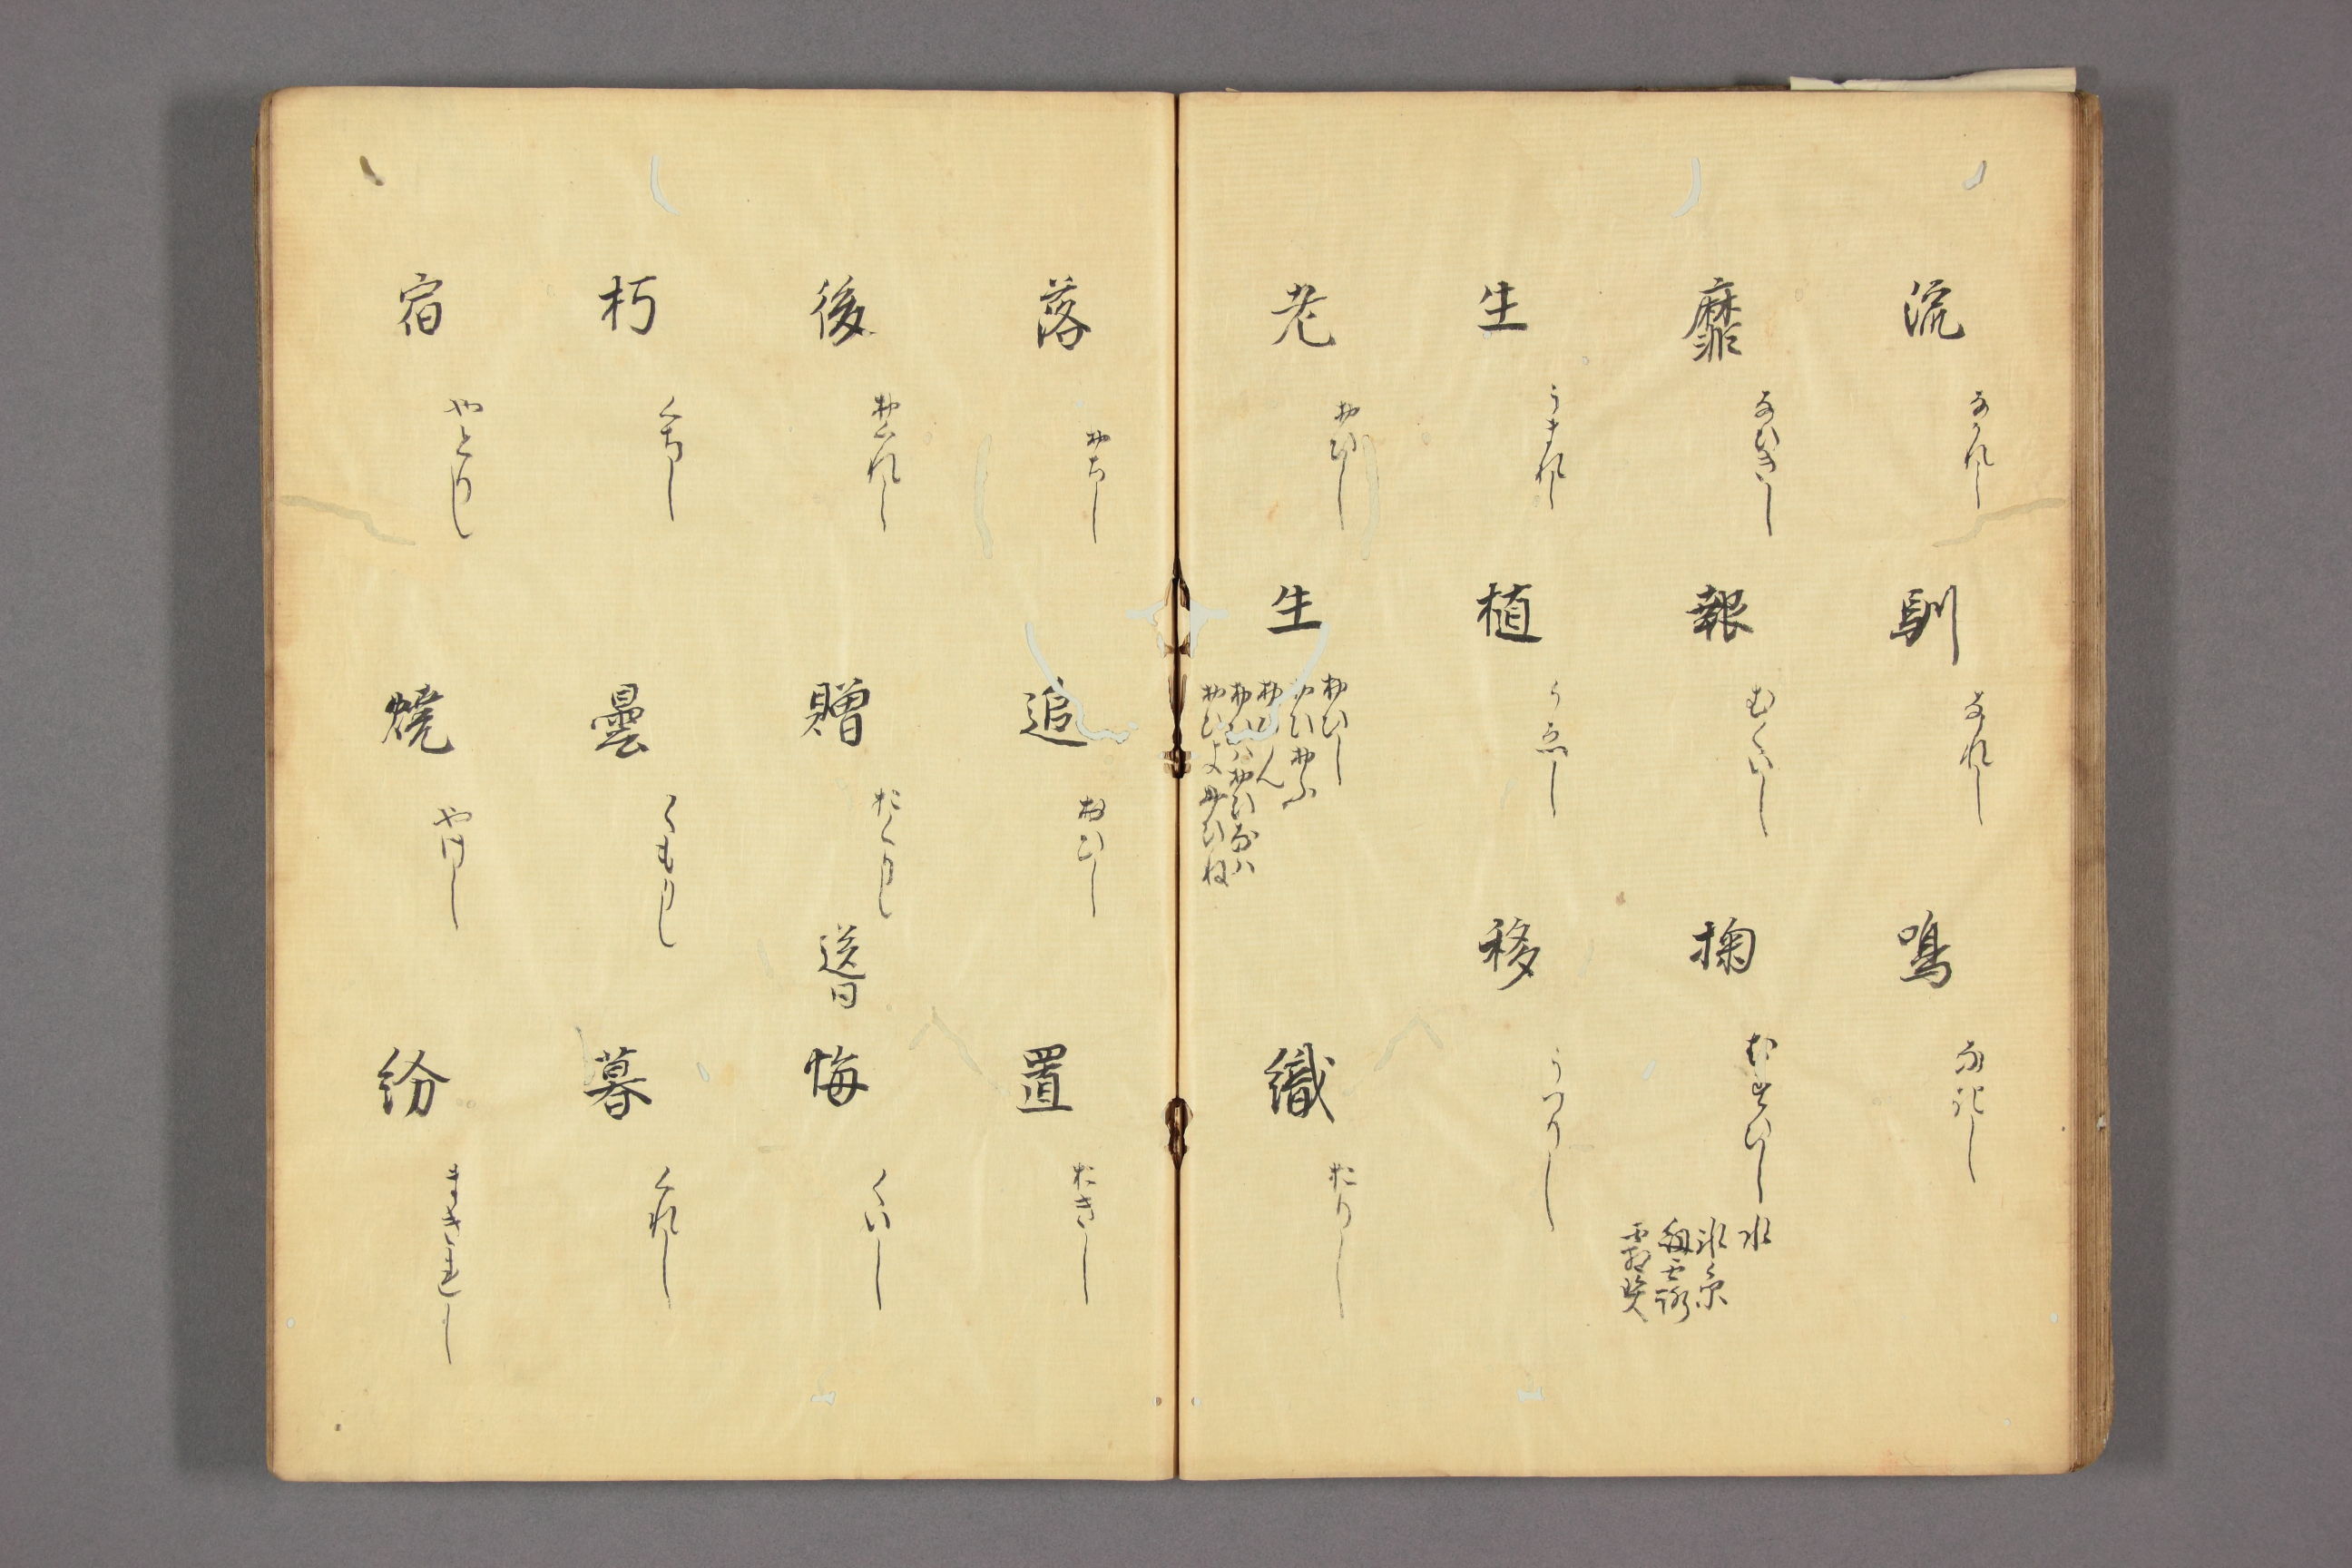 流
なかれし
馴
なれし
鳴
なれし
靡
なひきし
報
むくいし
掬
むすひし
水
氷 糸
露
霜
生
うまれし
植
うゑし
移
うつりし
老
おいし
生
おひし
おひ おふ
おひん
おひハ おひなハ
おひよ おひね
織
おりし
落
おちし
追
おひし
置
おきし
後
おくれし
贈
おくりし
送同
悔
くいし
朽
くちし
曇
くもりし
暮
くれし
宿
やとりし
焼
やけし
紛
まきれし